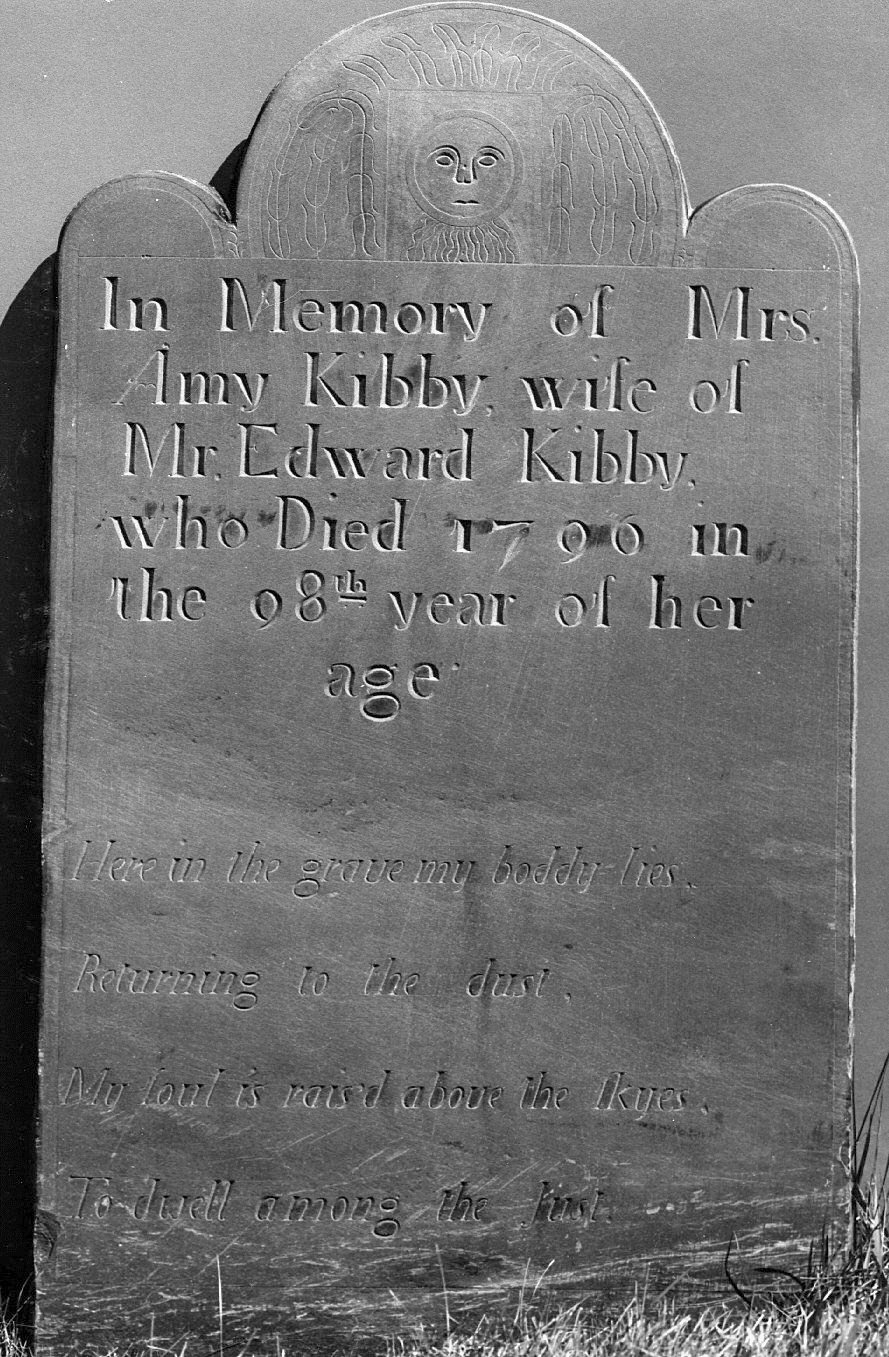 In Memory of Mrs.
Amy Kibby, wife of
Mr. Edward Kibby,
who Died 1796 in
the 98th year of her
age.
Here in the grave my boddy lies,
Returning to the dust,
My ſoul is rais'd above the ſkyes,
To dwell among the Just.